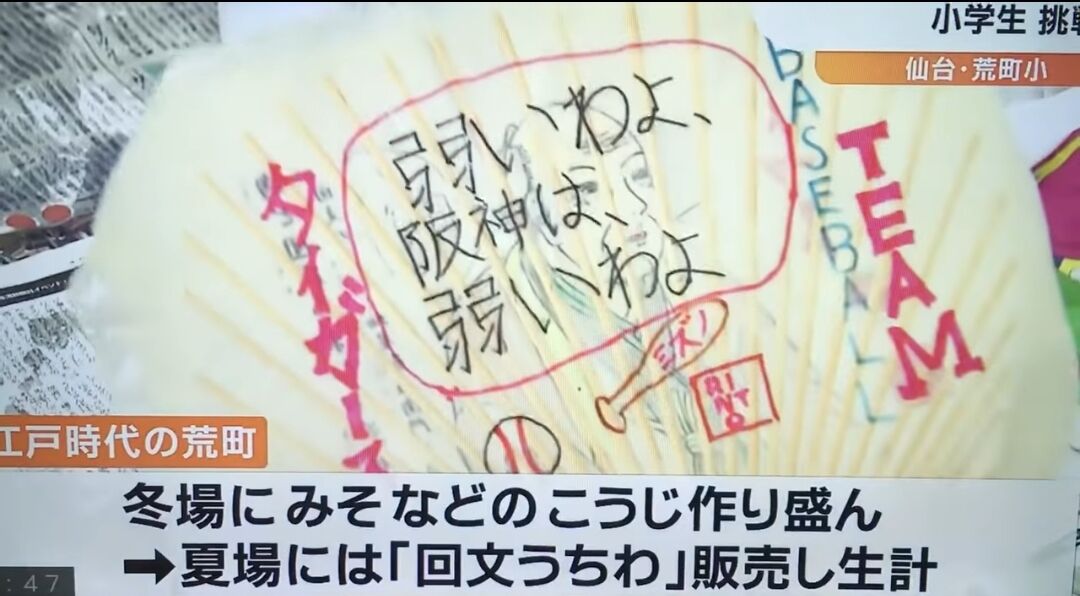 小学生 挑戦
仙台・荒町小
弱いわよ、
阪神は、
弱いわよ
タイガース
BASEBALL
TEAM
ミズノ
RINTO
江戸時代の荒町
冬場にみそなどのこうじ作り盛ん
➡夏場には「回文うちわ」販売し生計
:47